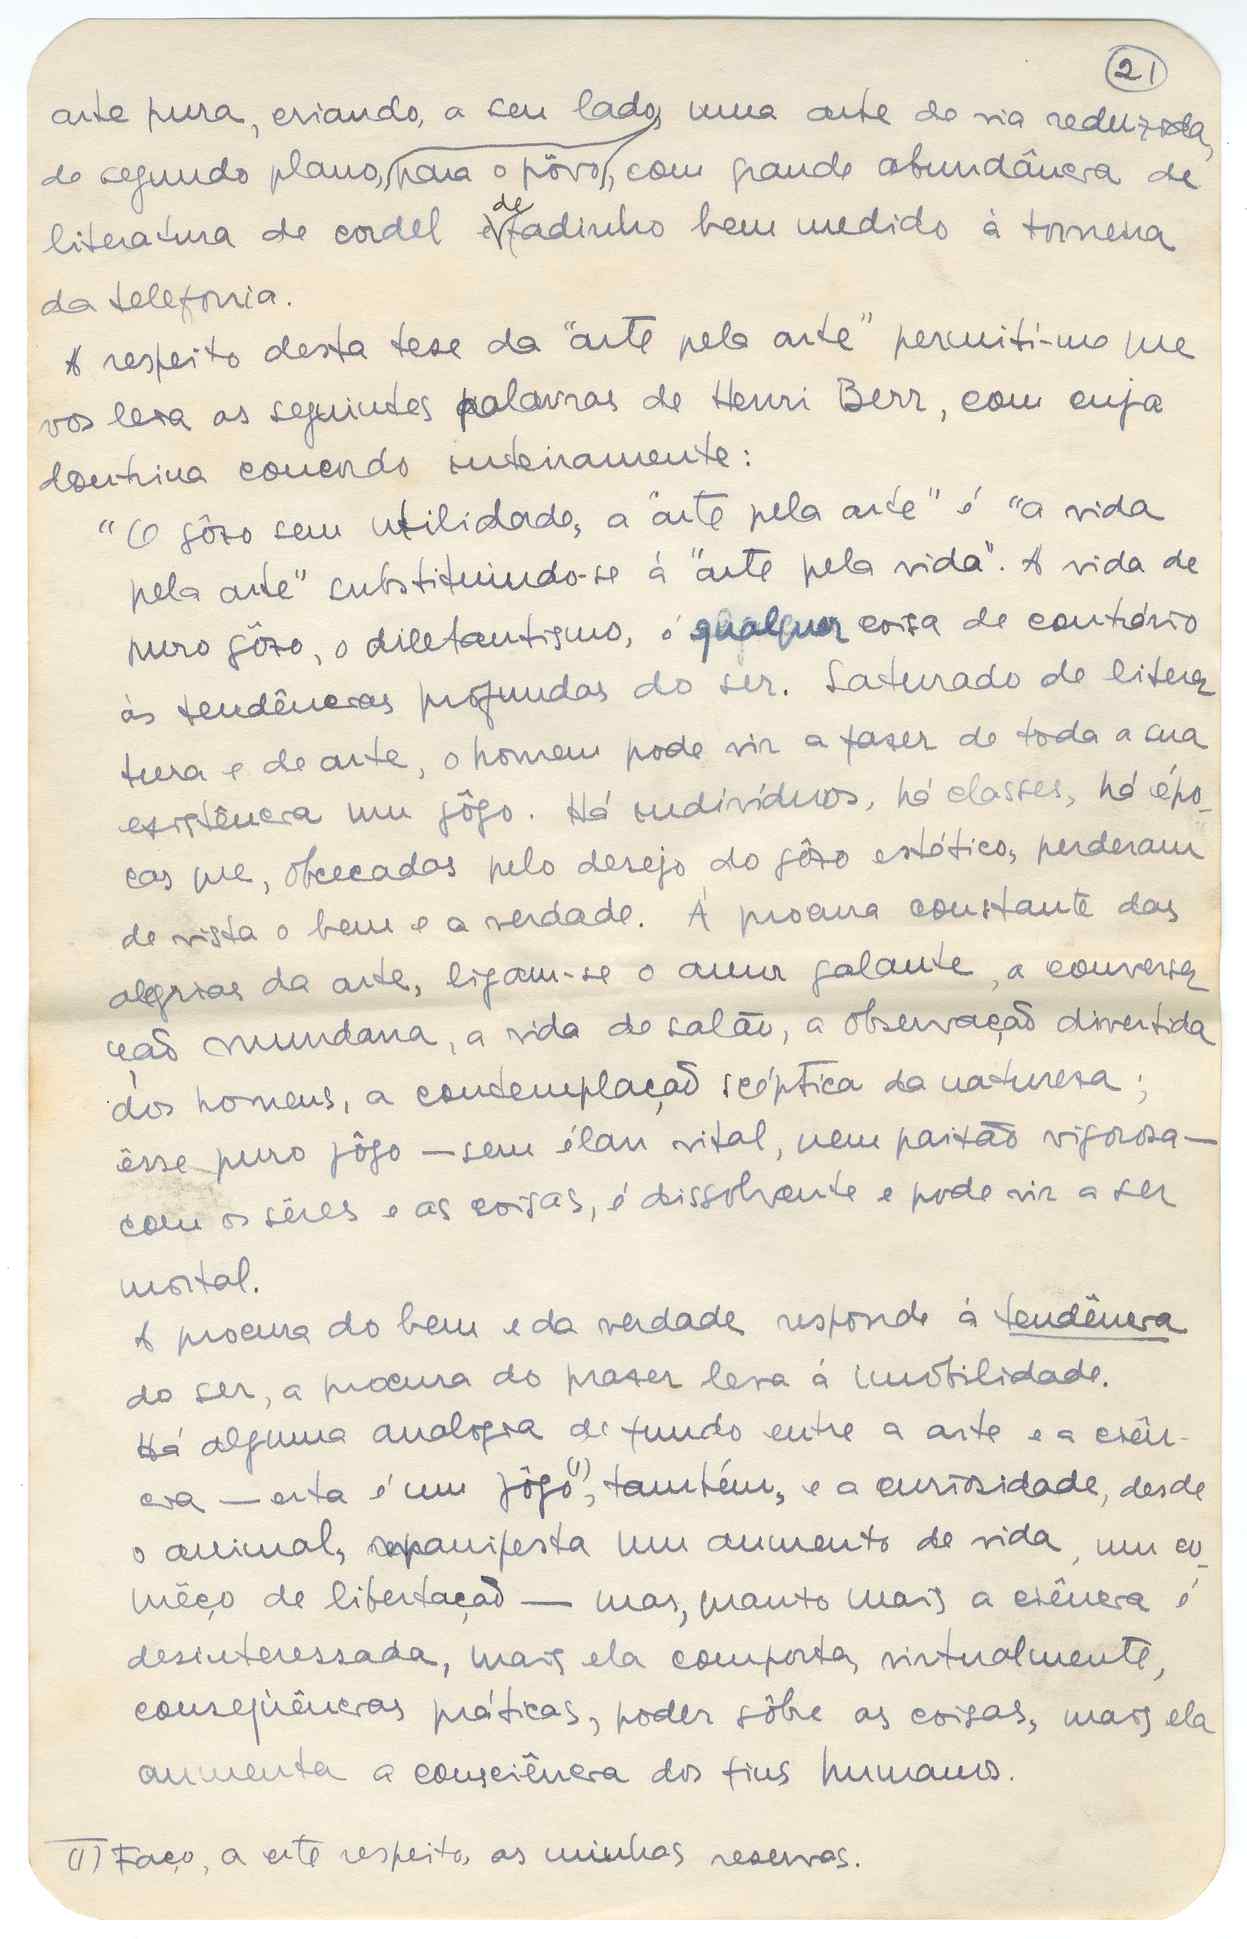 21
arte pura, criando, a seu lado, uma arte de via reduzida,
de segundo plano, para o pôvo, com grande abundância de
literatura de cordel e de fadinho bem medido à torneira
da telefonia.
A respeito desta tese da "arte pela arte" permiti-me que
vos leia as seguintes palavras de Henri Berr, com cuja
doutrina concordo inteiramente:
"O gôzo sem utilidade, a "arte pela arte" é "a vida
pela arte" substituindo-se à "arte pela vida". A vida de
puro gôzo, o diletantismo, é qualquer coisa de contrário
às tendências profundas do ser. Saturado de litera
tura e de arte, o homem pode vir a fazer de toda a sua
existência um jôgo. Há indivíduos, há classes, há épo-
cas que, obcecadas pelo desejo do gôzo estético, perderam
de vista o bem e a verdade. À procura constante das
alegrias da arte, ligam-se o amor galante, a conversa
ção mundana, a vida de salão, a observação divertida
dos homens, a contemplação scéptica da natureza;
êsse puro jôgo — sem élan vital, nem paixão vigorosa —
com os sêres e as coisas, é dissolvente e pode vir a ser
mortal.
A procura do bem e da verdade responde à tendência
do ser, a procura do prazer leva à imobilidade.
Há alguma analogia de fundo entre a arte e a ciên-
cia — esta é um jôgo (1), também, e a curiosidade, desde
o animal, manifesta um aumento de vida, um co-
mêço de libertação — mas, quanto mais a ciência é
desinteressada, mais ela comporta, virtualmente,
conseqüências práticas, poder sôbre as coisas, mais ela
aumenta a consciência dos fins humanos.
(1) Faço, a este respeito, as minhas reservas.